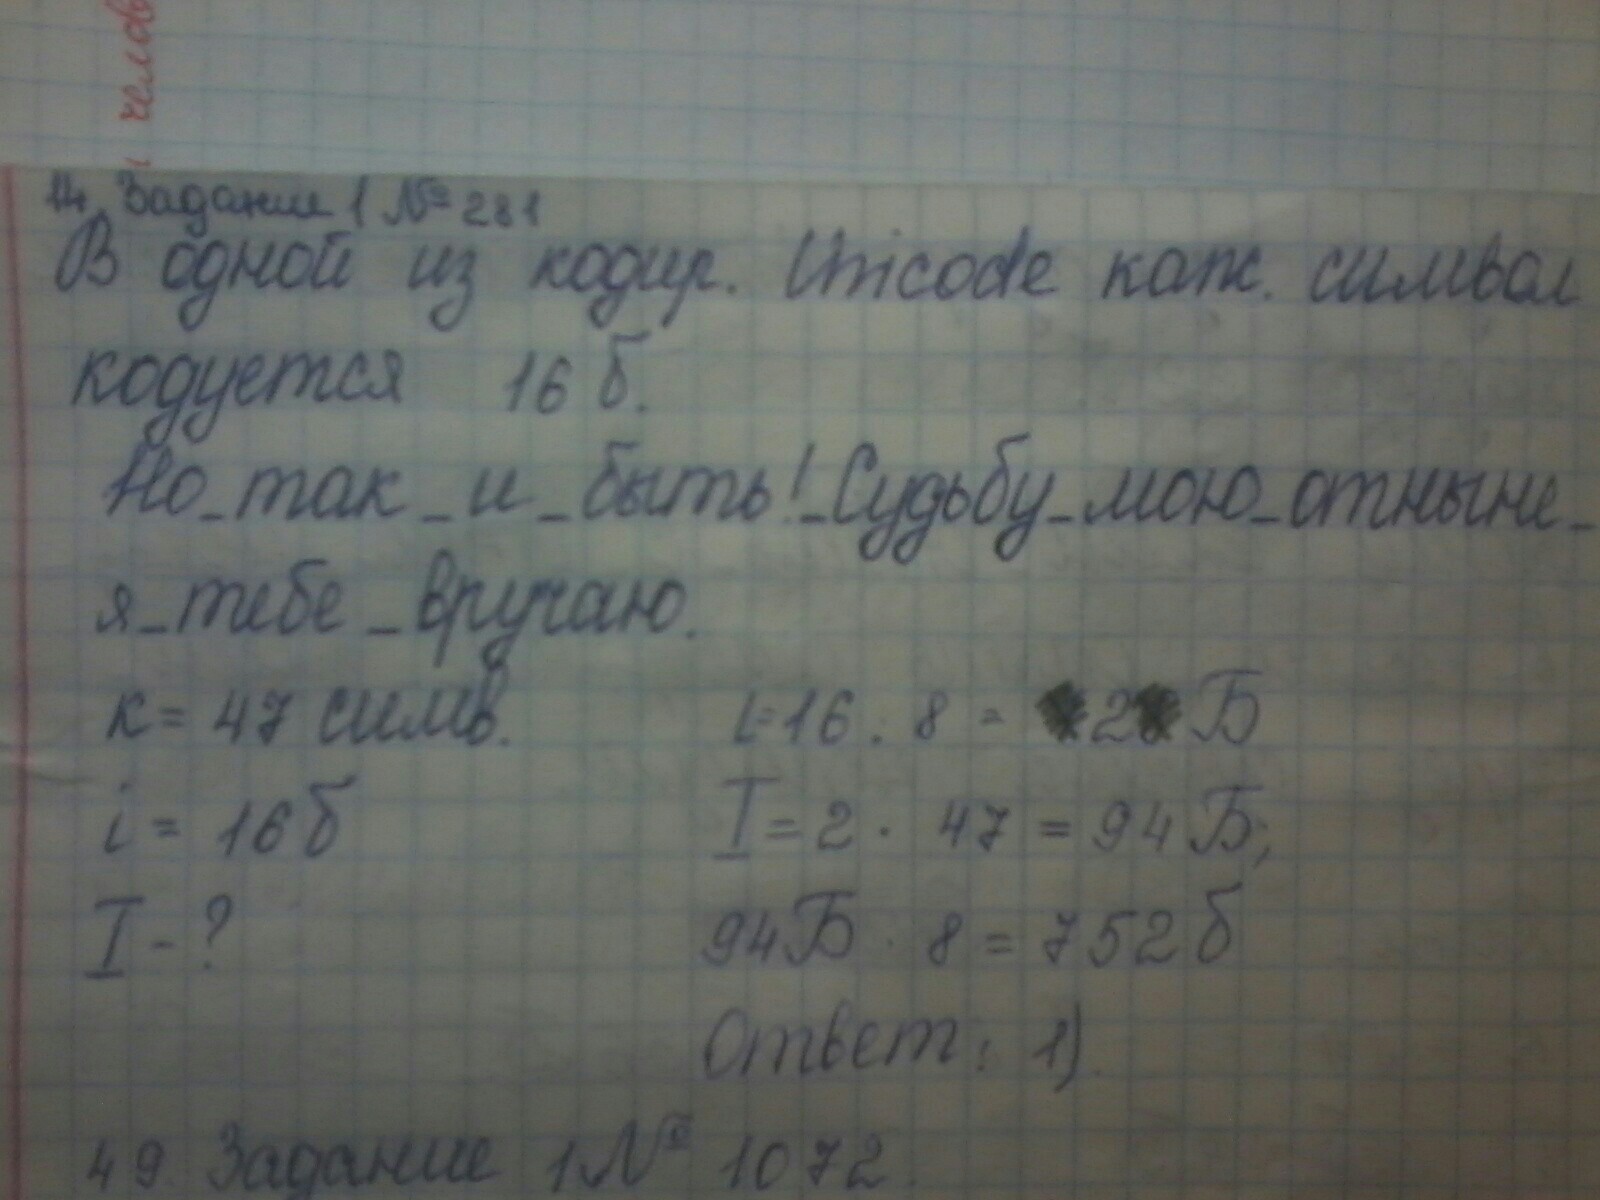 челов
14. Задание 1 № 281
В одной из кодир. Unicode каж. символ
кодуется 16 б.
Но_так_и_быть!_Судьбу_мою_отныне_
я_тебе_вручаю.
к = 47 симв.
i = 16 б
I - ?
i=16 : 8 = 2 Б
I = 2 · 47 = 94 Б;
94 Б · 8 = 752 б
Ответ: 1).
49. Задание 1 № 1072.